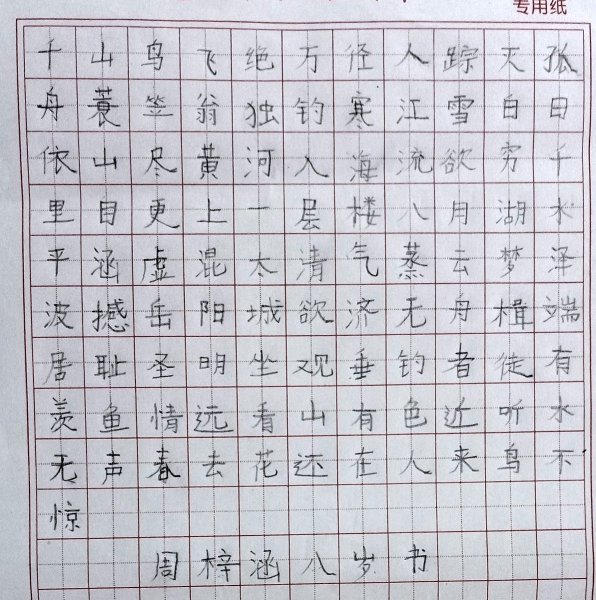 专用纸
千山鸟飞绝万径人踪灭孤
舟蓑笠翁独钓寒江雪白日
依山尽黄河入海流欲穷千
里目更上一层楼八月湖水
平涵虚混太清气蒸云梦泽
波撼岳阳城欲济无舟楫端
居耻圣明坐观垂钓者徒有
羡鱼情远看山有色近听水
无声春去花还在人来鸟不
惊
周梓涵八岁书